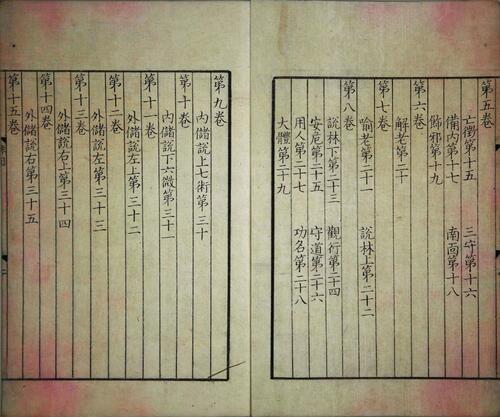 第五卷
亡徵第十五 三守第十六
備內第十七 南面第十八
飾邪第十九
第六卷
解老第二十
第七卷
喻老第二十一 說林上第二十二
第八卷
說林下第二十三 觀行第二十四
安危第二十五 守道第二十六
用人第二十七 功名第二十八
大體第二十九
第九卷
內儲說上七術第三十
第十卷
內儲說下六微第三十一
第十一卷
外儲說左上第三十二
第十二卷
外儲說左第三十三
第十三卷
外儲說右上第三十四
第十四卷
外儲說右第三十五
第十五卷